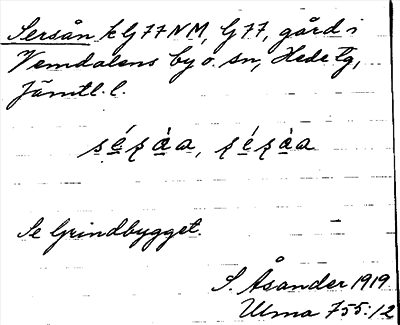 Sersån k G 77 NM, G 77, gård i
Vemdalens by o. sn, Hede tg,
Jämtl. l.
Se Grindbygget.
S. Åsander 1919
Ulma 755:12